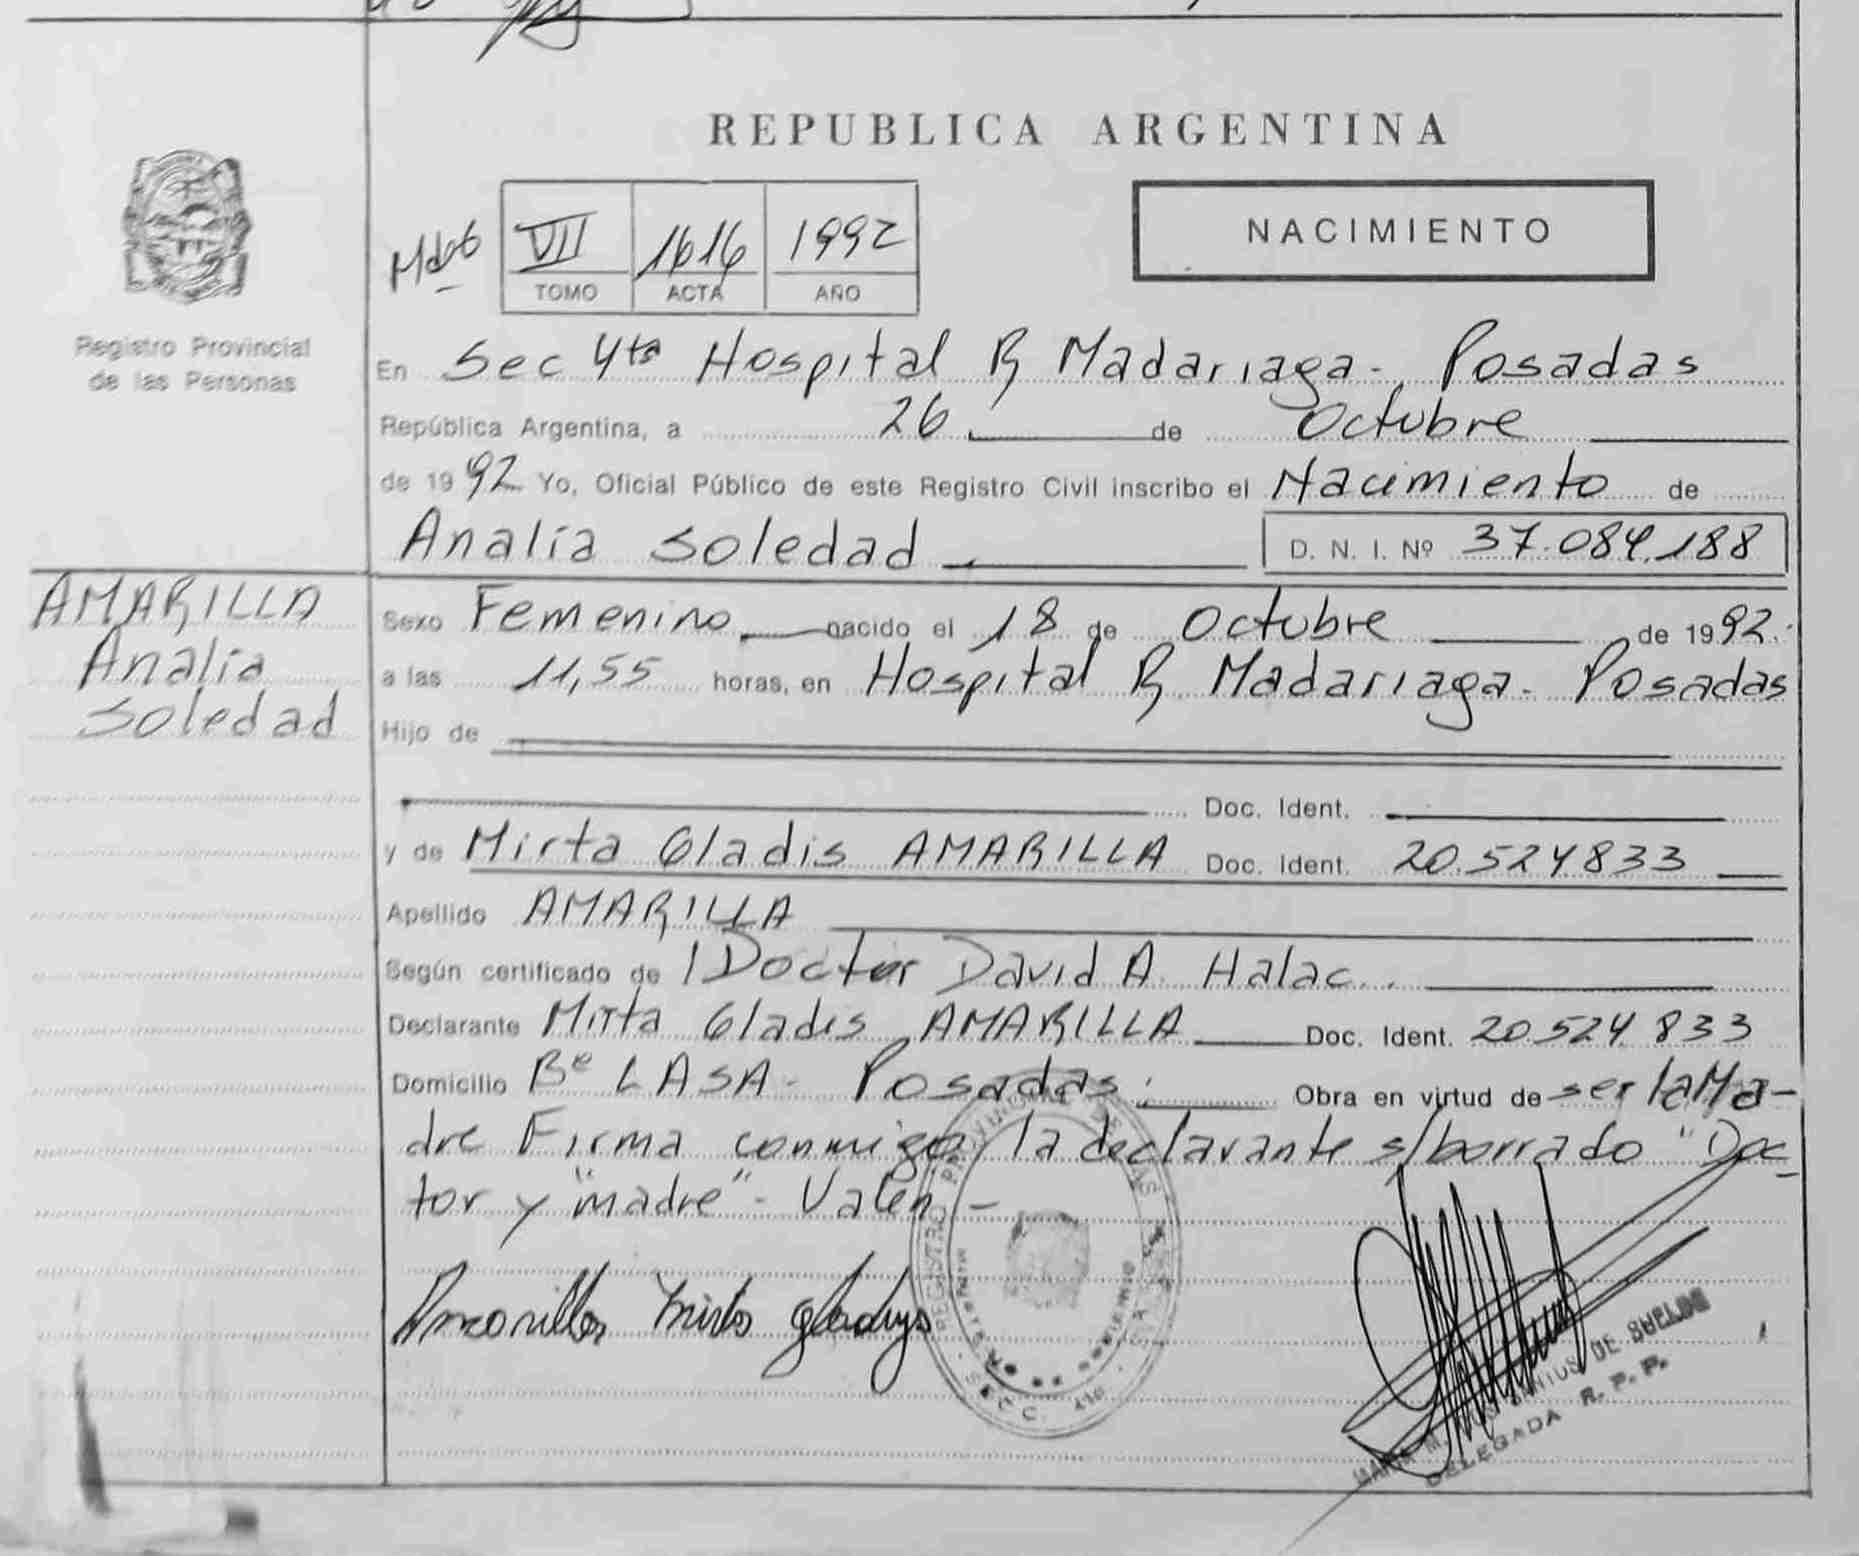 REPUBLICA ARGENTINA
NACIMIENTO
VII 1616 1992
TOMO ACTA AÑO
Registro Provincial
de las Personas
En Sec 4ta Hospital R Madariaga - Posadas
República Argentina, a 26 de Octubre
de 1992 Yo, Oficial Público de este Registro Civil inscribo el Nacimiento de
Analía Soledad D. N. I. Nº 37.084.188
AMARILLA
Analía
Soledad
Sexo Femenino nacido el 18 de Octubre de 1992.
a las 11,55 horas, en Hospital R Madariaga - Posadas
Hijo de
Doc. Ident.
y de Mirta Gladis AMARILLA Doc. Ident. 20.524833
Apellido AMARILLA
Según certificado de l Doctor David A. Halac.
Declarante Mirta Gladis AMARILLA Doc. Ident. 20.524.833
Domicilio Bº LASA - Posadas. Obra en virtud de ser la Ma-
dre Firma conmigo la declarante s/borrado "Doc-
tor y "madre" - Valen -
Amarilla Mirta gladys
REGISTRO PROVINCIAL DE LAS
SECC. 4ta
DE SUELDE
DELEGADA R. P. P.